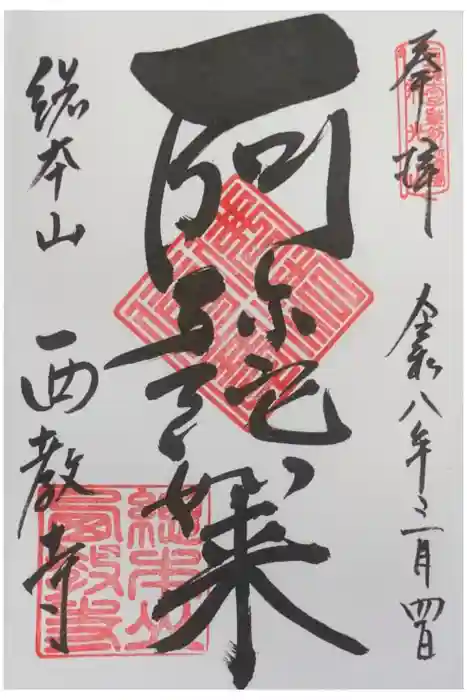 奉拝
令和八年三月四日
阿弥陀如来
総本山 西教寺
總本山
西教寺